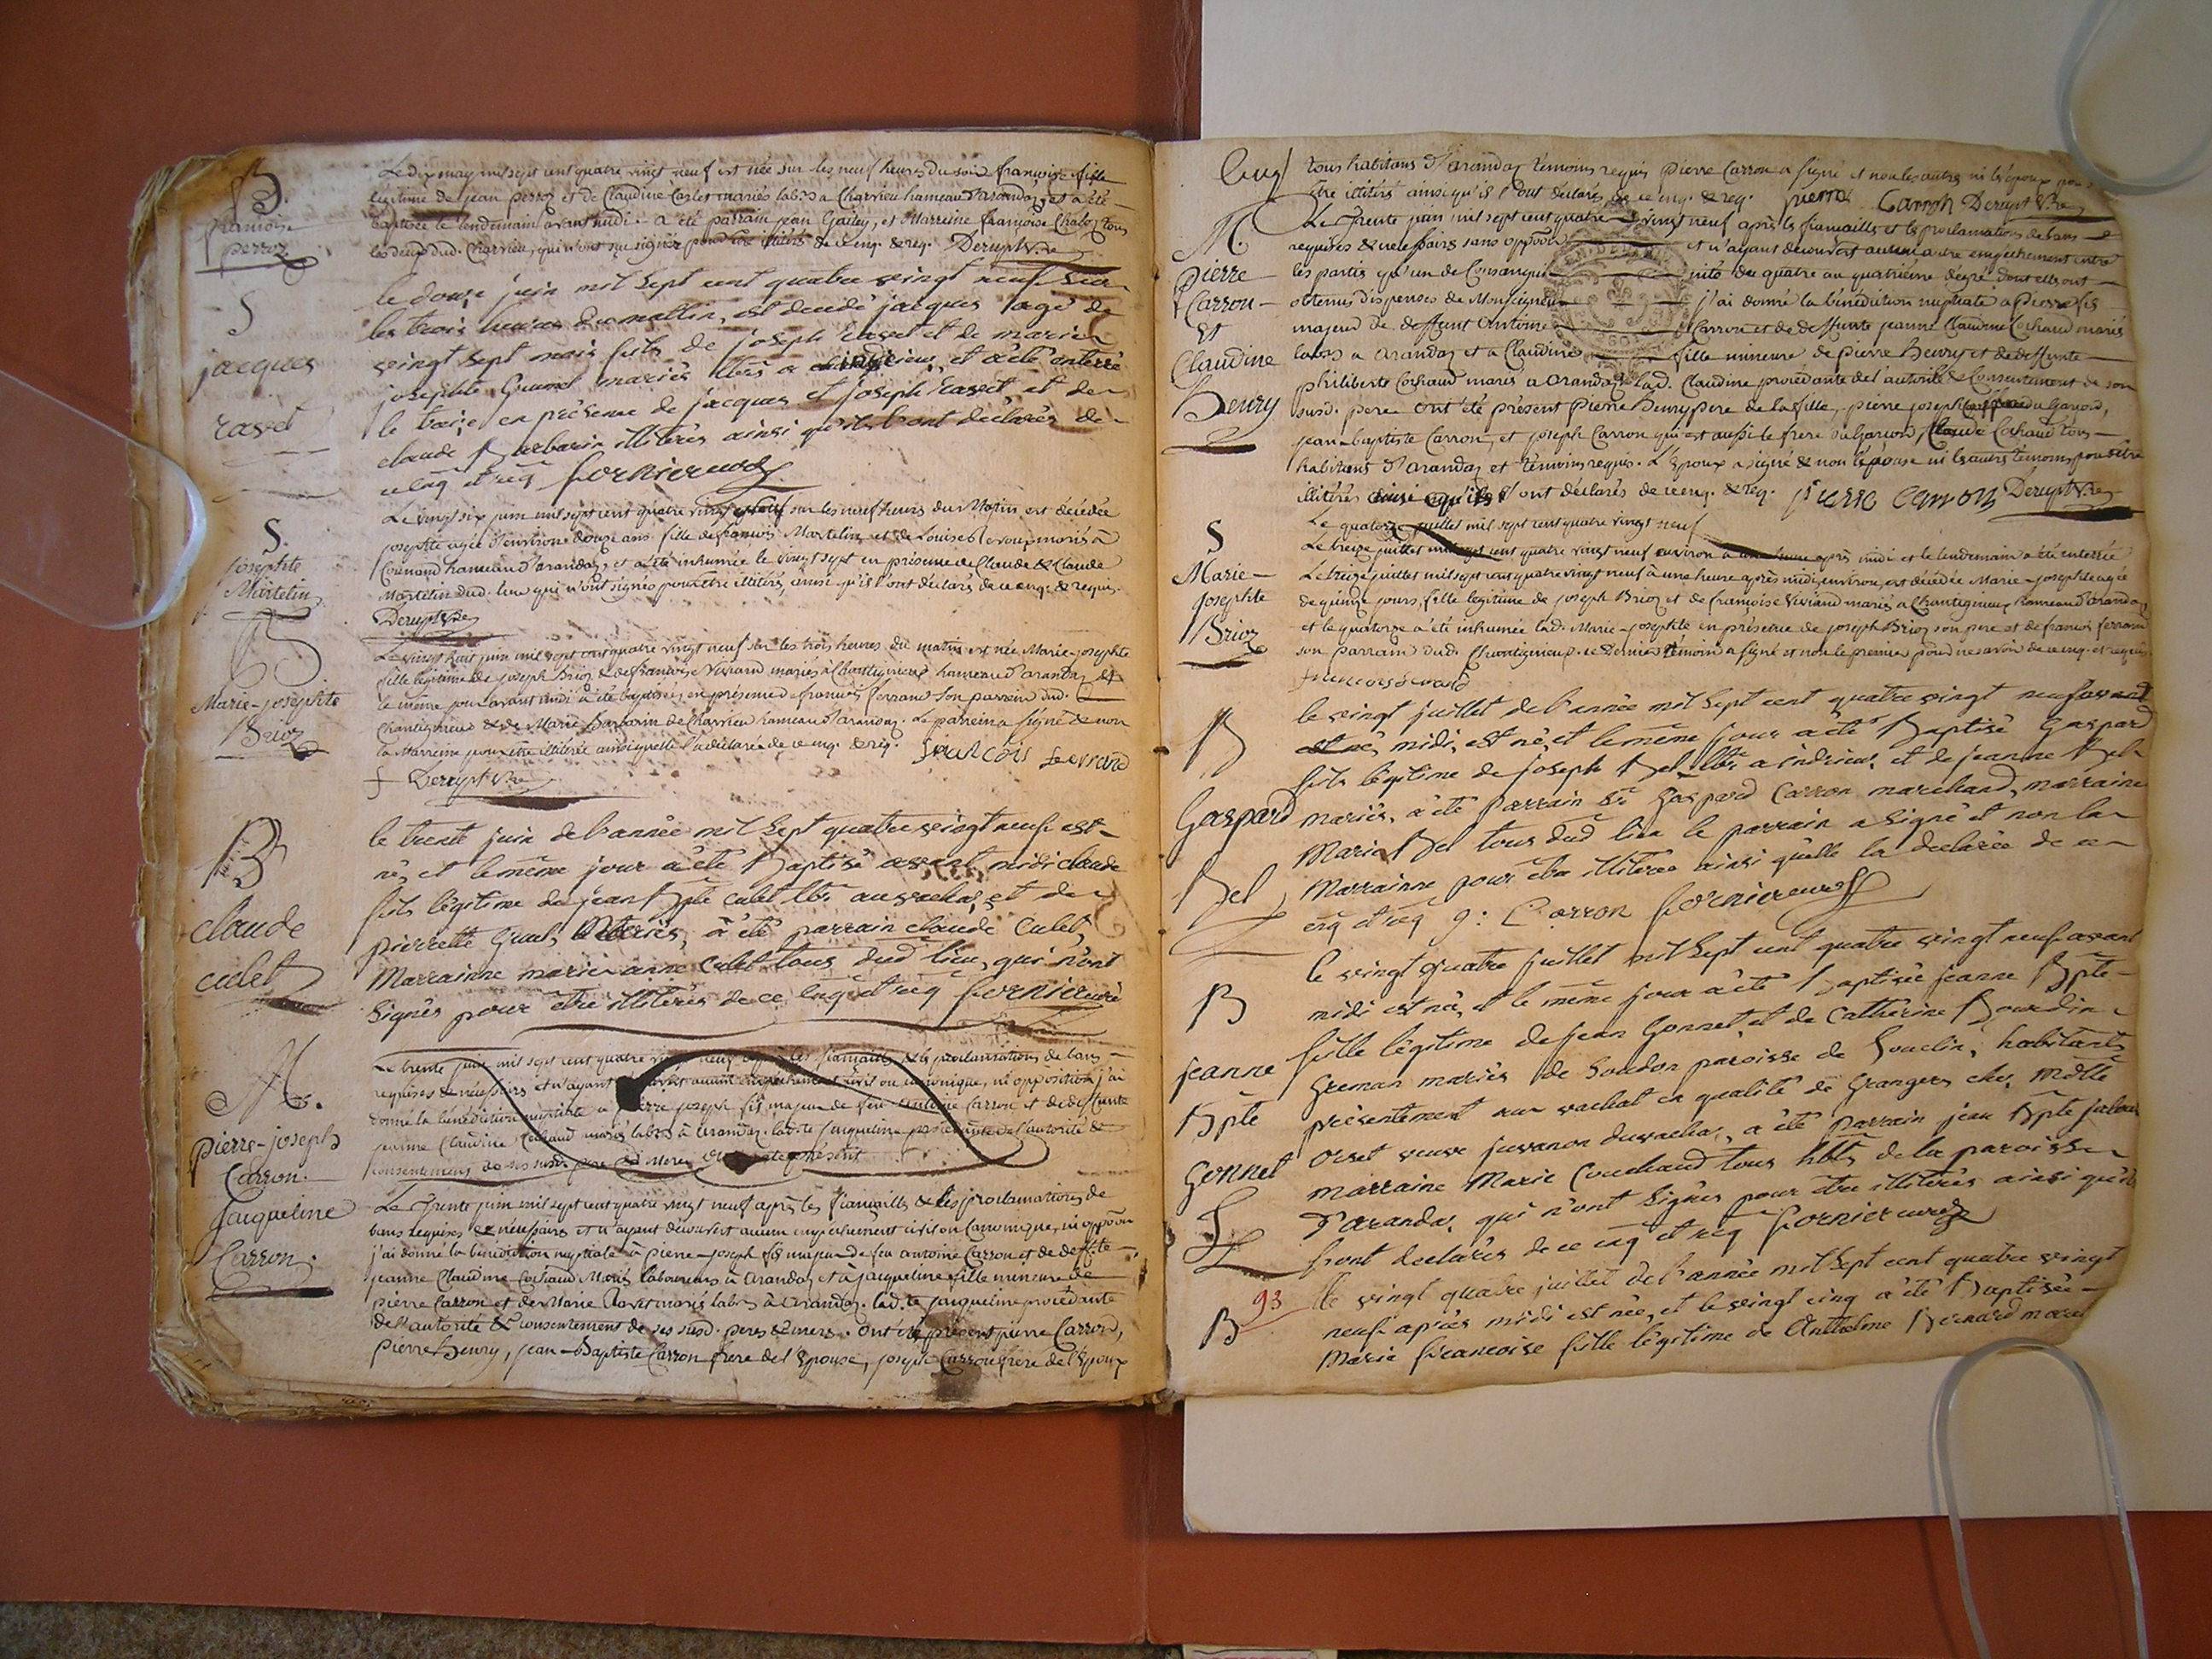 B.
françoise
perroz
Le dix may mil sept cent quatre vingt neuf est née sur les neuf heures du soir françoise fille
légitime de jean perroz et de Claudine Carlet mariés lab.rs a Charvieu hameau d'arandaz, et a été
baptisée le lendemain avant midi. a été parrain jean Gailey, et Marreine françoise Chaloz tous
les deux dud. Charvieu, qui n'ont sçu signer pour être illitérés de ce enq. & req. Derupt V.re
S
jacques
ravet
le douze juin mil sept cent quatre vingt neuf sur
les trois heures du mattin, est decedé jacques agé de
vingt sept mois fils de joseph Ravet et de marie
josephte Grumet mariés lbrs a indrieux, et a été enterré
le treize en présence de jacques et joseph Ravet, et de
claude Barbarin illitérés ainsi qu'ils l'ont déclarés de
ce enq et req fornier curé
S.
josephte
Martelin
Le vingt six juin mil sept cent quatre vingt neuf sur les neuf heures du Matin est décédée
josephte agée d'environ douze ans fille de françois Martelin et de Louise Leroup mariés à
Counand hameau d'arandaz, et a été inhumée le vingt sept en présence de Claude & Claude
Martelin dud. lieu qui n'ont signés pour être illitérés, ainsi qu'ils l'ont déclarés de ce enq. & requis.
Derupt V.re
B
Marie-josephte
Brioz
Le vingt huit juin mil sept cent quatre vingt neuf sur les trois heures du matin est née Marie-josephte
fille légitime de joseph Brioz & de françoise Viviand mariés a Chantignieux hameau d'arandaz, et
le même jour avant midi a été baptisée, en présence de françois ferrand son parrain dud.
Chantignieux & de Marie Barbarin de Charvieu hameau d'arandaz. Le parrein a signé & non
la Marreine pour être illitérée ainsi qu'elle l'a déclarée de ce enq. & req. francois ferrand
Derupt V.re
B
claude
culet
le trente juin de l'année mil sept quatre vingt neuf est
né, et le même jour a été Baptisé avant midi claude
fils légitime de jean Bpte culet lbr. au vachat, et de
pierrette Gual, Mariés, a été parrain claude culet,
Marrainne marie anne culet tous dud lieu, qui n'ont
signés pour être illitérés de ce enq et req fornier curé
M.
pierre-joseph
Carron.
Jacqueline
Carron.
Le trente juin mil sept cent quatre vingt neuf après les fiançailles & les proclamations de bans
requises & nécessaires et n'ayant découvert aucun empêchement civil ou canonique, ni opposition j'ai
donné la bénédiction nuptiale a pierre joseph fils majeur de feu antoine Carron et de deffunte
jeanne Claudine Cochaud mariés labrs à arandaz. lad.te Jacqueline procedante de l'autorité &
consentement de ses susd. pere & Mere. ont été présent
Le Trente juin mil sept cent quatre vingt neuf après les fiançailles & les proclamations de
bans requises & nécessaires et n'ayant découvert aucun empêchement civil ou Canonique, ni oppo.on
j'ai donné la bénédiction nuptiale à pierre-joseph fils majeur de feu antoine Carron et de deff.te
jeanne Claudine Cochaud Mariés laboureurs à arandaz et à jacqueline fille mineure de
pierre Carron et de Marie Ravet mariés labrs à arandaz. lad.te jacqueline procédante
de l'autorité & consentement de ses susd. peres & meres. ont été présent pierre Carron,
pierre henry, jean-Baptiste Carron frere de l'Epouse, joseph Carron frere de l'Epoux
tous habitans d'arandaz témoins requis pierre Carron a signé et non les autres ni les époux pour
être illitérés ainsi qu'ils l'ont déclarés de ce enq. & req. pierre Carron Derupt V.re
M.
Pierre
Carron
et
Claudine
henry
Le Trente juin mil sept cent quatre vingt neuf après les fiançailles et les proclamations de bans
requises & nécessaires sans oppo.on et n'ayant découvert aucun autre empêchement entre
les partis qu'un de Consanguinité du quatre au quatrième degré dont elles ont
obtenus dispenses de Monseigneur j'ai donné la bénédiction nuptiale a Pierre fils
majeur de deffunt antoine Carron et de deffunte jeanne Claudine Cochaud mariés
labrs a arandaz et a Claudine fille mineure de pierre henry et de deffunte
philiberte Cochaud mariés a arandaz. lad. Claudine procédante de l'autorité & Consentement de son
susd. pere ont été présent pierre henry pere de la fille, pierre joseph du garçon,
jean-baptiste Carron, et joseph Carron qui est aussi le frere du garçon, Claude Cochaud tous
habitans d'arandaz et témoins requis. L'Epoux a signé & non l'épouse ni les autres témoins pour être
illitérés ainsi qu'ils l'ont déclarés de ce enq. & req. pierre carron Derupt V.re
S
Marie-
josephte
Brioz
Le quatorze juillet mil sept cent quatre vingt neuf
Le treize juillet mil sept cent quatre vingt neuf environ a une heure après midi et le lendemain a été enterrée
Le treize juillet mil sept cent quatre vingt neuf à une heure après midi environ, est décédée Marie-josephte agée
de quinze jours, fille legitime de joseph Brioz et de françoise Viviand mariés a Chantignieux hameau d'arandaz
et le quatorze a été inhumée lad. Marie-josephte en présence de joseph Brioz son pere et de francois ferrand
son parrain dud. Chantignieux. ce dernier témoin a signé et non le premier pour ne savoir de ce enq. et requis
francois ferrand
B
Gaspard
Bel
le vingt juillet de l'année mil sept cent quatre vingt neuf avant
est né, midi, est né, et le même jour a été Baptisé Gaspard
fils légitime de joseph Bel lbr. a indrieux, et de jeanne Bel
mariés, a été parrain Sr Gaspard Carron marchand, marraine
Marie Bel tous dud lieu le parrain a signé et non la
Marrainne pour être illiterée ainsi qu'elle la declarée de ce
enq et req g: Carron fornier curé
B
jeanne
Bpte
Gonnet
le vingt quatre juillet mil sept cent quatre vingt neuf avant
midi est née, et le même jour a été Baptisée jeanne Bpte
fille légitime de jean Gonnet, et de Catherine Bourdin
Greman mariés de Soudon paroisse de Souclin, habitants
présentement au vachat en qualité de Grangers chez Mdlle
Orset veuve juvanon du vachat, a été parrain jean Bpte
marraine Marie Couchaud tous hbts de la paroisse
d'arandas, qui n'ont signés pour être illitérés ainsi qu'ils
l'ont declarés de ce enq et req fornier curé
93
B
le vingt quatre juillet de l'année mil sept cent quatre vingt
neuf après midi est née, et le vingt cinq a été Baptisée
Marie françoise fille légitime de Anthelme Benard marel